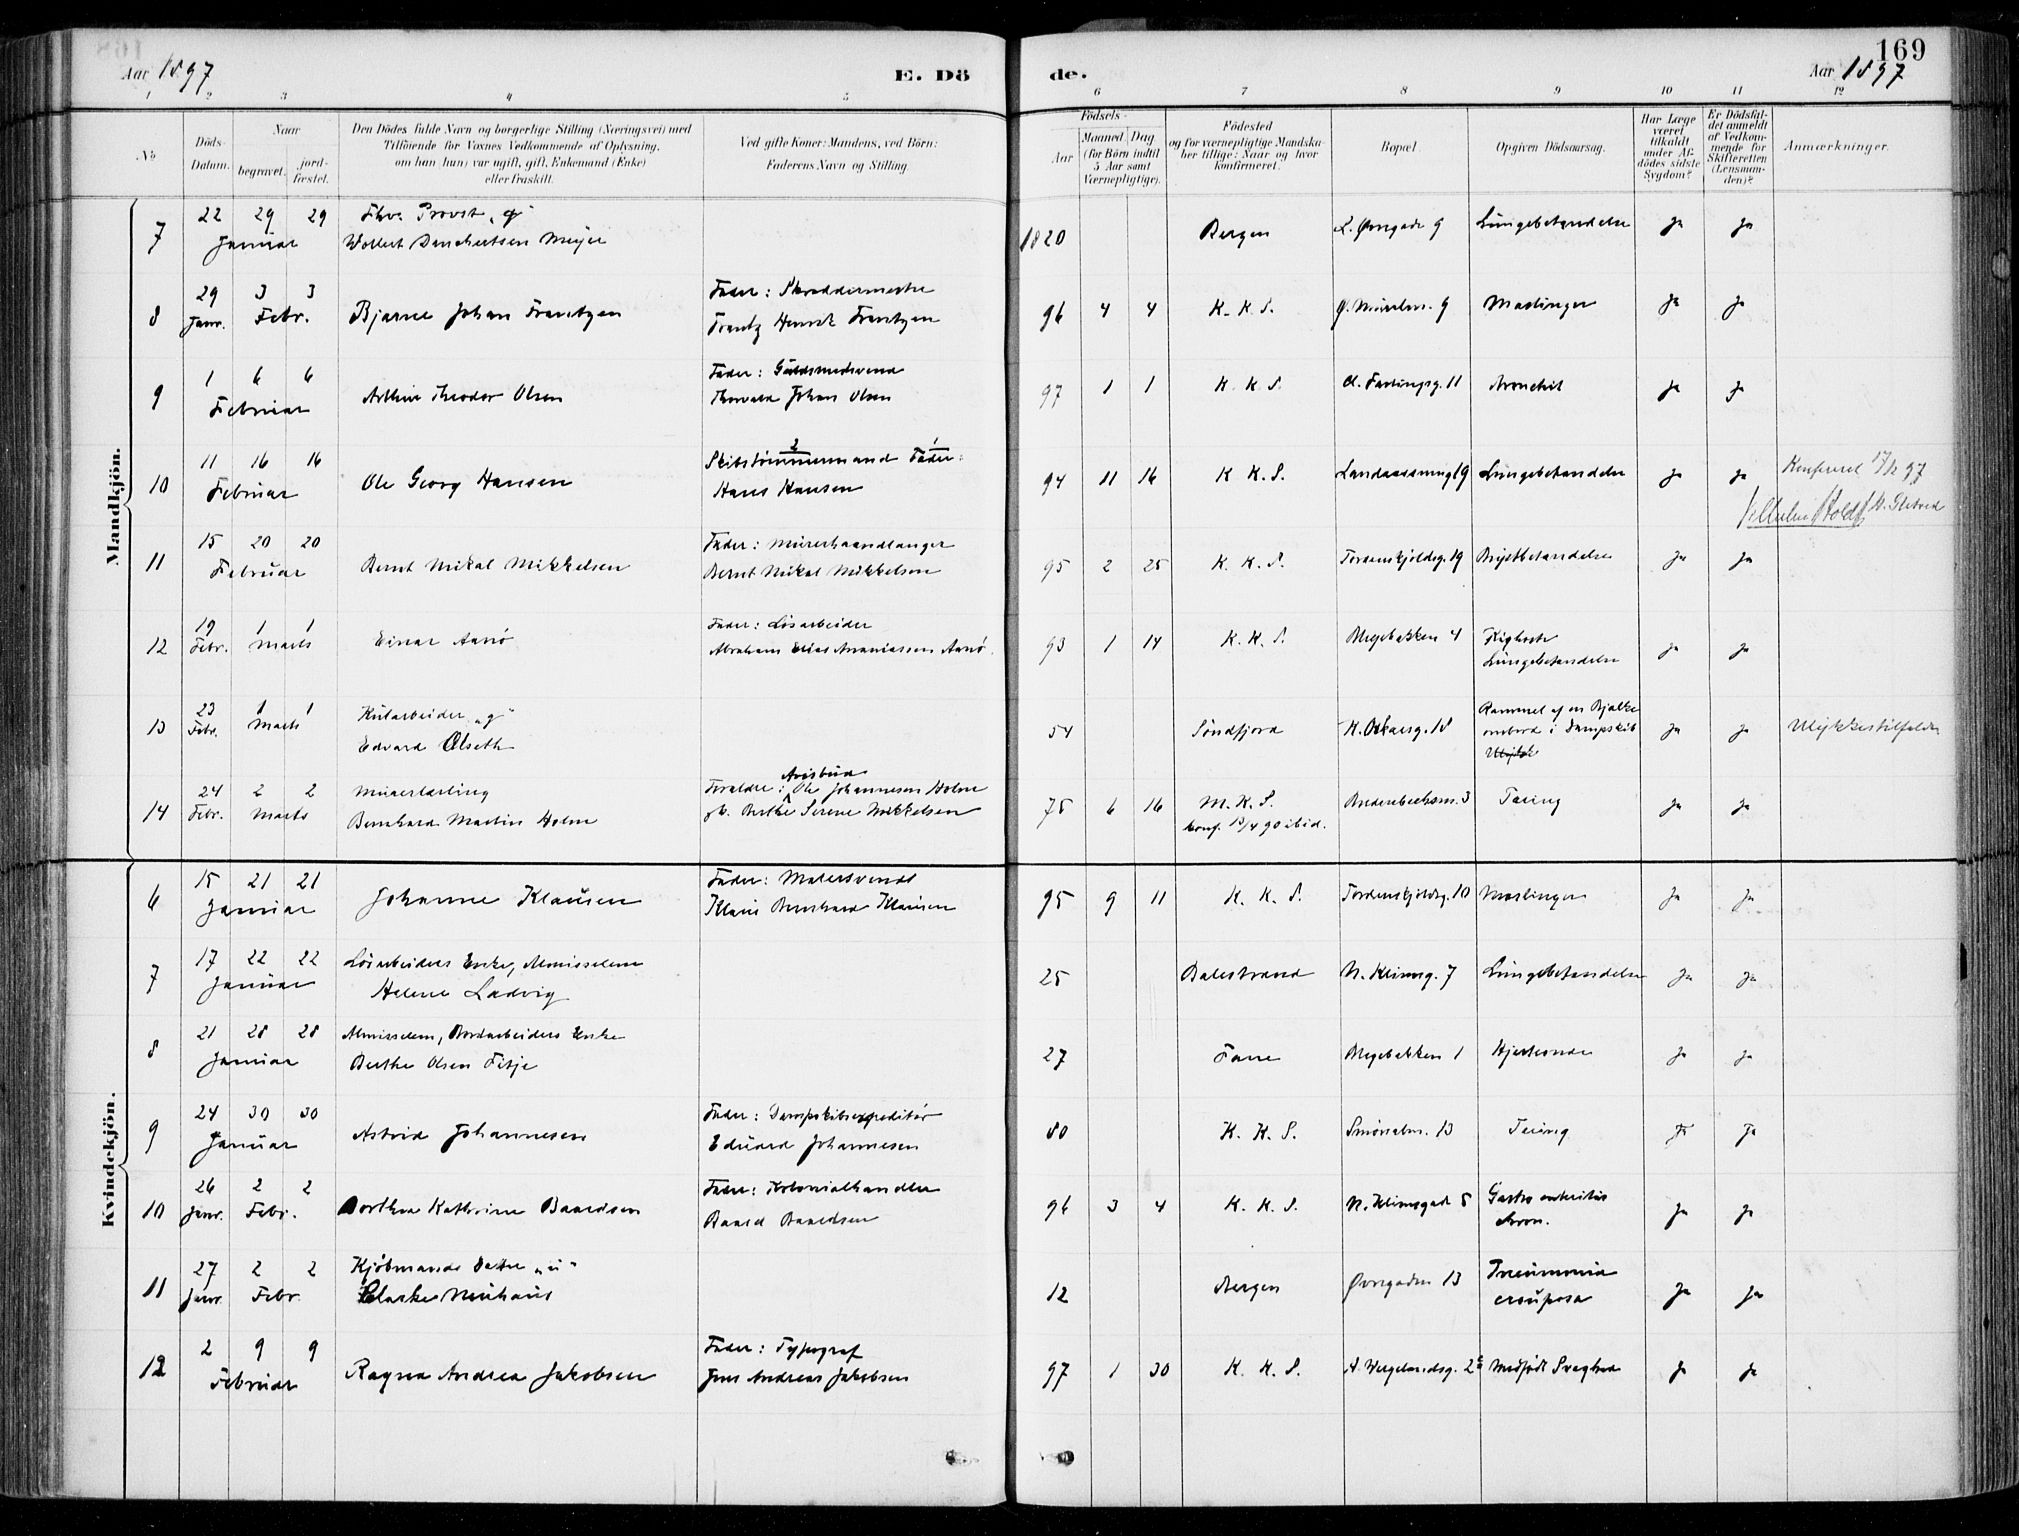 169
Aar 1897
E. Dö
de.
Aar 1897
1 2 3 4 5 6 7 8 9 10 11 12
No
Döds-Datum.
Naar
begravet.
jord-fæstet.
Den Dödes fulde Navn og borgerlige Stilling (Næringsvei) med
Tilföiende for Voxnes Vedkommende af Oplysning,
om han (hun) var ugift, gift, Enkemand (Enke)
eller fraskilt.
Ved gifte Koner: Mandens, ved Börn:
Faderens Navn og Stilling.
Födsels-
Aar
Maaned Dag
(for Börn indtil
5 Aar samt
Værnepligtige).
Födested
og for værnepligtige Mandska-
ber tillige: Naar og hvor
konfirmeret.
Bopæl.
Opgiven Dödsaarsag.
Har Læge
været
tilkaldt
under Af-
dödes sidste
Sygdom?
Er Dödsfal-
det anmeldt
af Vedkom-
mende for
Skifteretten
(Lensman-
den)?
Anmærkninger.
Mandkjön.
7 22 29 29 Januar
Fhv. Provst "g"
Wollert Danchertsen Meyer
1820 Bergen L. Øvregade 9 Lungebetændelse Ja Ja
8 29 3 3 Janr. Febr.
Bjarne Johan Frantzen
Fader: Skræddermester
Frantz Henrik Frantzen
96 4 4 K. K. S. Ø. Murelm. 9 Mæslinger Ja Ja
9 1 6 6 Februar
Arthur Theodor Olsen
Fader: Guldsmedsvend
Thorvald Johan Olsen
97 1 1 K. K. S. C. Fastingsg. 11 Bronchit Ja Ja
10 11 16 16 Februar
Ole Georg Hansen
Skibstømmermand Fader:
Hans Hansen
94 11 16 K. K. S. 19 Lungebetændelse Ja Ja
Konfereret 17/2 97
11 15 20 20 Februar
Bernt Mikal Mikkelsen
Fader: Murerhaandlanger
Bernt Mikal Mikkelsen
95 2 25 K. K. S. Tordenskjoldsg. 19 Brystbetændelse Ja Ja
12 19 1 1 Febr. Marts
Einar Aarø
Fader: Løsarbeider
Abraham Elias Ananiassen Aarø.
93 1 14 K. K. S. Blegebakken 4 Kighoste
Lungebetændelse Ja Ja
13 23 1 1 Febr. Marts
Kularbeider "g"
Edvard Olseth
54 Søndfjord K. Oskarsg. 18 Rammet af en Bjælke
ombord i Dampskib
Ja Ja Ulykkestilfælde
14 24 2 2 Febr. Marts
Murerlærling
Bernhard Martin Holm
Avisbud
Forældre: Ole Johannesen Holm
og Berthe Serene Mikkelsen
75 6 16 M. K. S.
konf. 13/4 90 ibid.
3 Tæring Ja Ja
Kvindekjön.
6 15 21 21 Januar
Johanne Klausen
Fader: Malersvend
Klaus Bernhard Klausen
95 9 11 K. K. S. Tordenskjoldsg. 10 Mæslinger Ja Ja
7 17 22 22 Januar
Løsarbeiders Enke, Almisselem
Helene Ladvig
25 Balestrand N. Klimsg. 7 Lungebetændelse Ja Ja
8 21 28 28 Januar
Almisselem, Bordarbeiders Enke
Berthe Olsen Fitje
27 Fane Blegebakken 1 Hjerteonde Ja Ja
9 24 30 30 Januar
Astrid Johannesen
Fader: Dampskibsexpeditør
Eduard Johannesen
80 K. K. S. Smørsalm. 13 Tæring Ja Ja
10 26 2 2 Janr. Febr.
Dorthea Kathrine Baardsen
Fader: Kolonialhandler
Baard Baardsen
96 3 4 K. K. S. N. Klimsgade 5 Gastro enteritis
chron. Ja Ja
11 27 2 2 Janr. Febr.
Kjøbmands Datter "u"
Neuhaus
12 Bergen Øvregaden 13 Pneumonia
crouposa Ja Ja
12 2 9 9 Februar
Ragna Andrea Jakobsen
Fader: Typograf
Jens Andreas Jakobsen
97 1 30 K. K. S. A. Wergelandsg. 2 Medfødt Svaghed Ja Ja